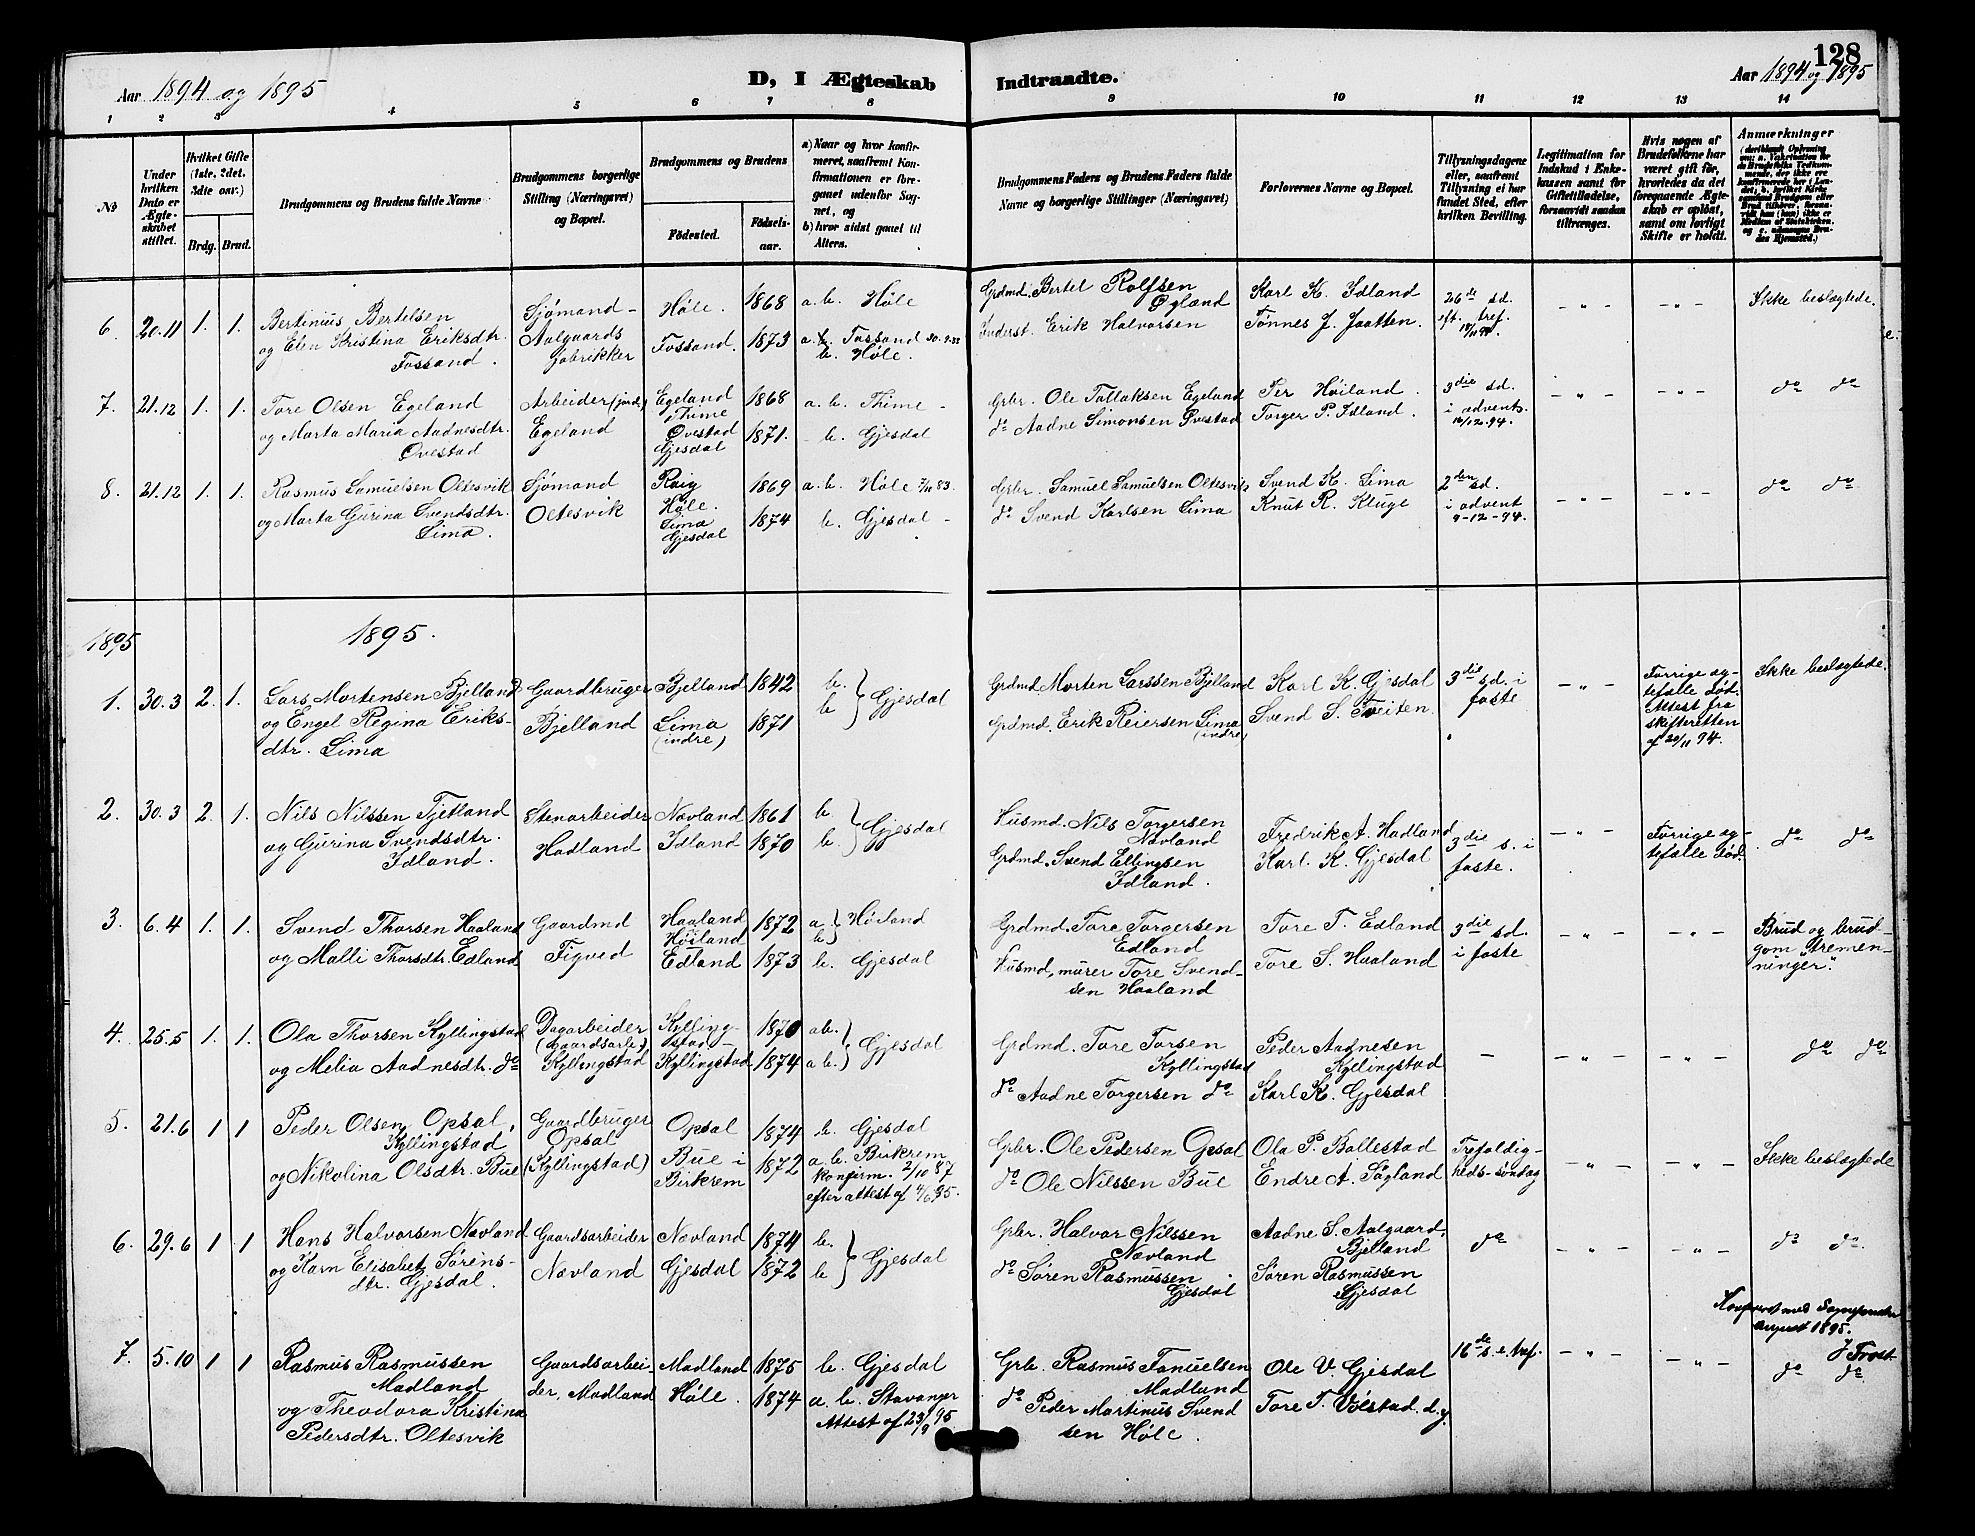 128
Aar 1894 og 1895
D, I Ægteskab
Indtraadte.
Aar 1894 og 1895
1 2 3 4 5 6 7 8 9 10 11 12 13 14
No
Under hvilken Dato er Ægteskabet stiftet.
Hvilket Gifte (1ste, 2det, 3die osv.)
Brdg. Brud.
Brudgommens og Brudens fulde Navne
Brudgommens borgerlige Stilling (Næringsvei) og Bopæl.
Brudgommens og Brudens
Fødested.
Fødselsaar.
a) Naar og hvor konfirmeret, saafremt Konfirmationen er foregaaet udenfor Sognet, og
b) hvor sidst gaaet til Alters.
Brudgommens Faders og Brudens Faders fulde Navne og borgerlige Stillinger (Næringsvei)
Forlovernes Navne og Bopæl.
Tillysningsdagene eller, saafremt Tillysning ei har fundet Sted, efter hvilken Bevilling.
Legitimation for Indskud i Enkekassen samt for Giftetilladelse, forsaavidt saadan tiltrænges.
Hvis nogen af Brudefolkene har været gift før, hvorledes da det foregaaende Ægteskab er opløst, samt om lovligt Skifte er holdt.
Anmærkninger
6. 20.11 1. 1. Bertinius Bertelsen
og Elen Kristina Eriksdtr.
Fossand.
Sjømand -
Aalgaards
fabrikker
Høle. 1868 a. b. Høle
Fossand. 1873 a. b. Fossand
b. Høle.
Grdmd. Bertel Rolfsen
Øgland
Inderst. Erik Halvorsen
Karl K. Idland
Tønnes J. Jaatten.
26de sd.
eft. tref.
18/11 94.
- " - - " - Ikke beslægtede.
7. 21.12 1. 1. Tore Olsen Egeland
og Marta Maria Aadnesdtr.
Øvestad
Arbeider (jord)
Egeland
Egeland
Thime
1868 a. b. Thime -
Øvestad
Gjesdal
1871. - b. Gjesdal
Grbr. Ole Tollaksen Egeland
do Aadne Simonsen Øvestad
Per Høiland.
Torger P. Idland.
3die sd.
i advents.
16/12.94.
- " - - " - do do
8. 21.12 1. 1. Rasmus Samuelsen Oltesvik
og Marta Gurina Svendsdtr.
Lima.
Sjømand
Oltesvik
Høle.
1869 a. b. Høle 7/11 83.
Lima
Gjesdal
1874 b. Gjesdal -
Grbr. Samuel Samuelsen Oltesvik
do Svend Karlsen Lima
Svend K. Lima
Knut R. Kluge
2den sd.
i advent
9-12-94.
- " - - " - do do
1895 1895.
1. 30.3 2. 1. Lars Mortensen Bjelland
og Engel Regina Eriks-
dtr. Lima
Gaardbruger
Bjelland
Bjelland 1842 b.
Lima
(indre)
1871 b
Gjesdal
Grdmd. Morten Larssen Bjelland
Grdmd. Erik Reiersen Lima
(indre)
Karl K. Gjesdal
Svend S. Tveiten.
3die sd. i
faste
- " -
Forrige æg-
tefælle død.
Attest fra
skifteretten
af 20/11 94.
Ikke beslægtede.
2. 30.3 2. 1. Nils Nilssen Tjetland
og Gurina Svendsdtr.
Idland.
Stenarbeider
Hadland
Novland 1861 b
Idland 1870 b.
Gjesdal
Husmd. Nils Torgersen
Novland
Grdmd. Svend Ellingsen
Idland.
Fredrik A. Hadland
Karl. K. Gjesdal
3die s. i
faste.
- " -
Forrige æg-
tefælle død.
do do
3. 6.4 1. 1. Svend Thorsen Haaland
og Malli Thorsdtr. Edland
Gaardmd
Figved
Haaland
Høiland
1872 a. b. Høiland
Edland 1873 b. Gjesdal
Grdmd. Tore Torgersen
Edland
Husmd, murer Tore Svend-
sen Haaland
Tore T. Edland
Tore S. Haaland
3die sd.
i faste
- " - - " -
Brud og brud-
gom "tremen-
ninger".
4. 25.5 1. 1. Ola Thorsen Kyllingstad
og Melia Aadnesdtr. do
Dagarbeider
(gaardsarb.)
Kyllingstad
Kylling-
stad -
1870 ab.
Kyllingstad 1874 a b.
Gjesdal
Grdmd. Tore Torsen
Kyllingstad
do Aadne Torgersen do
Peder Aadnesen
Kyllingstad
Karl K. Gjesdal
- - " - - " - do do
5. 21.6 1 1 Peder Olsen Opsal,
Kyllingstad
og Nikolina Olsdtr. Bue
Gaardbruger
Opsal
(Kyllingstad)
Opsal 1874 b. Gjesdal
Bue i
Birkrem
1872 a. b. Birkrem
konfirm. 2/10 87
efter attest af 4/6 95.
Grbr. Ole Pedersen Opsal
do Ole Nilssen Bue
Ola P. Bollestad
Endre A. Søgland
Trefoldig-
heds-søndag
- " - - " - Ikke beslægtede
6. 29.6 1 1 Hans Halvorsen Novland
og Karn Elisabet Sørens-
dtr. Gjesdal.
Gaardsarbeider
Novland
Novland 1874 b.
Gjesdal 1872 b
Gjesdal
Grbr. Halvor Nilssen
Novland
do Søren Rasmussen
Gjesdal
Aadne S. Aalgaard,
Bjelland
Søren Rasmussen
Gjesdal
do
- " - - " - do do
august 1895.
7. 5.10 1 1 Rasmus Rasmussen
Madland
og Theodora Kristina
Pedersdtr. Oltesvik
Gaardsarbei-
der, Madland
Madland 1875 b. Gjesdal
Høle. 1874 a. b. Stavanger
Attest af 23/9 95
Grb. Rasmus Tanuelsen
Madland
do Peder Martinus Svend
sen Høle.
Ole V. Gjesdal
Tore T. Voistad. d.y.
16de s. e. tref.
- " - - " - do do